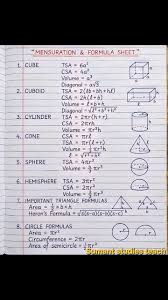 "MENSURATION & FORMULA SHEET"
1. CUBE TSA = 6a²
CSA = 4a²
Volume = a³
Diagonal = a√3
2. CUBOID TSA = 2(lb+bh+hl)
CSA = 2h(l+b)
Volume = l×b×h
Diagonal = √l²+b²+h²
3. CYLINDER TSA = 2πr(h+r)
CSA = 2πrh
Volume = πr²h
4. CONE TSA = πr(l+r)
CSA = πrl
Volume = ⅓πr²h
5. SPHERE TSA = 4πr²
Volume = 4/3 πr³
6. HEMISPHERE TSA = 3πr²
CSA = 2πr²
Volume = ⅔πr³
7. IMPORTANT TRIANGLE FORMULAS
Area = ½×b×h
Heron's Formula = √s(s-a)(s-b)(s-c)
8. CIRCLE FORMULAS
Area = πr²
Circumference = 2πr
Area of semicircle = ½πr²
Sumant studies teach